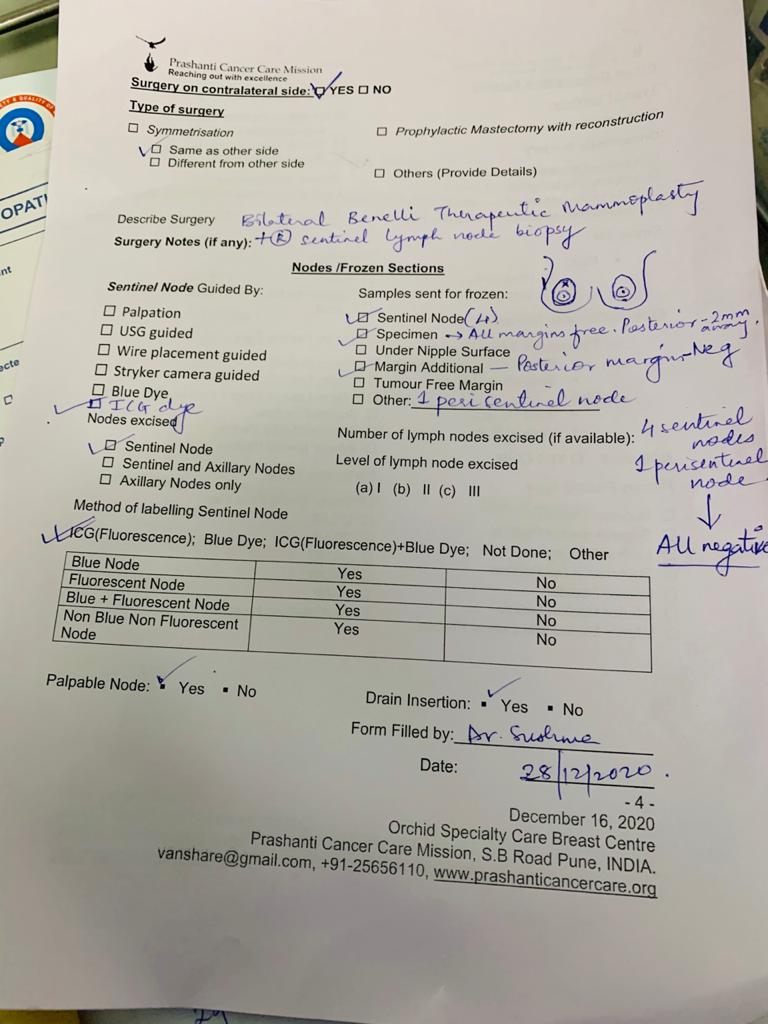 Prashanti Cancer Care Mission
Reaching out with excellence
Surgery on contralateral side: YES NO
Type of surgery
Symmetrisation
Same as other side
Different from other side
Prophylactic Mastectomy with reconstruction
Others (Provide Details)
Describe Surgery Bilateral Benelli Therapeutic Mammoplasty
Surgery Notes (if any): + R sentinel lymph node biopsy
Nodes /Frozen Sections
Sentinel Node Guided By:
Palpation
USG guided
Wire placement guided
Stryker camera guided
Blue Dye
ICG dye
Samples sent for frozen:
Sentinel Node (4)
Specimen → All margins free. Posterior - 2mm away.
Under Nipple Surface
Margin Additional — Posterior margin - Neg
Tumour Free Margin
Other: 1 peri sentinel node
Nodes excised
Sentinel Node
Sentinel and Axillary Nodes
Axillary Nodes only
Number of lymph nodes excised (if available): 4 sentinel nodes
1 perisentinel node
↓
All negative
Level of lymph node excised
(a) I (b) II (c) III
Method of labelling Sentinel Node
ICG(Fluorescence); Blue Dye; ICG(Fluorescence)+Blue Dye; Not Done; Other
Blue Node Yes No
Fluorescent Node Yes No
Blue + Fluorescent Node Yes No
Non Blue Non Fluorescent Node Yes No
Palpable Node: Yes No
Drain Insertion: Yes No
Form Filled by: Dr. Sushma
Date: 28/12/2020.
- 4 -
December 16, 2020
Orchid Specialty Care Breast Centre
Prashanti Cancer Care Mission, S.B Road Pune, INDIA.
vanshare@gmail.com, +91-25656110, www.prashanticancercare.org